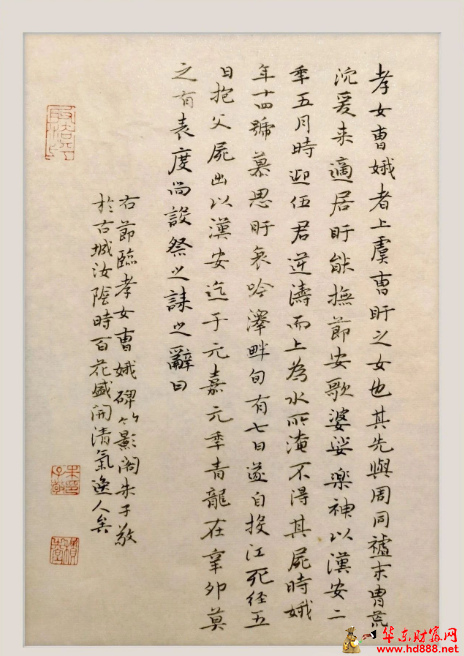 孝女曹娥者上虞曹盱之女也其先與周同禮末曹荒
沉爰来適居盱能撫節安歌婆娑樂神以漢安二
季五月時迎伍君逆濤而上為水所淹不得其屍時娥
年十四號慕思盱哀吟澤畔旬有七日遂自投江死経五
日抱父屍出以漢安迄于元嘉元季青龍在辛卯莫
之有表度尚設祭之誄之辭曰
右節臨孝女曹娥碑竹影閣朱子敬
於古城汝陰時百花盛開清氣逸人矣
华东财富网
www.hd888.net